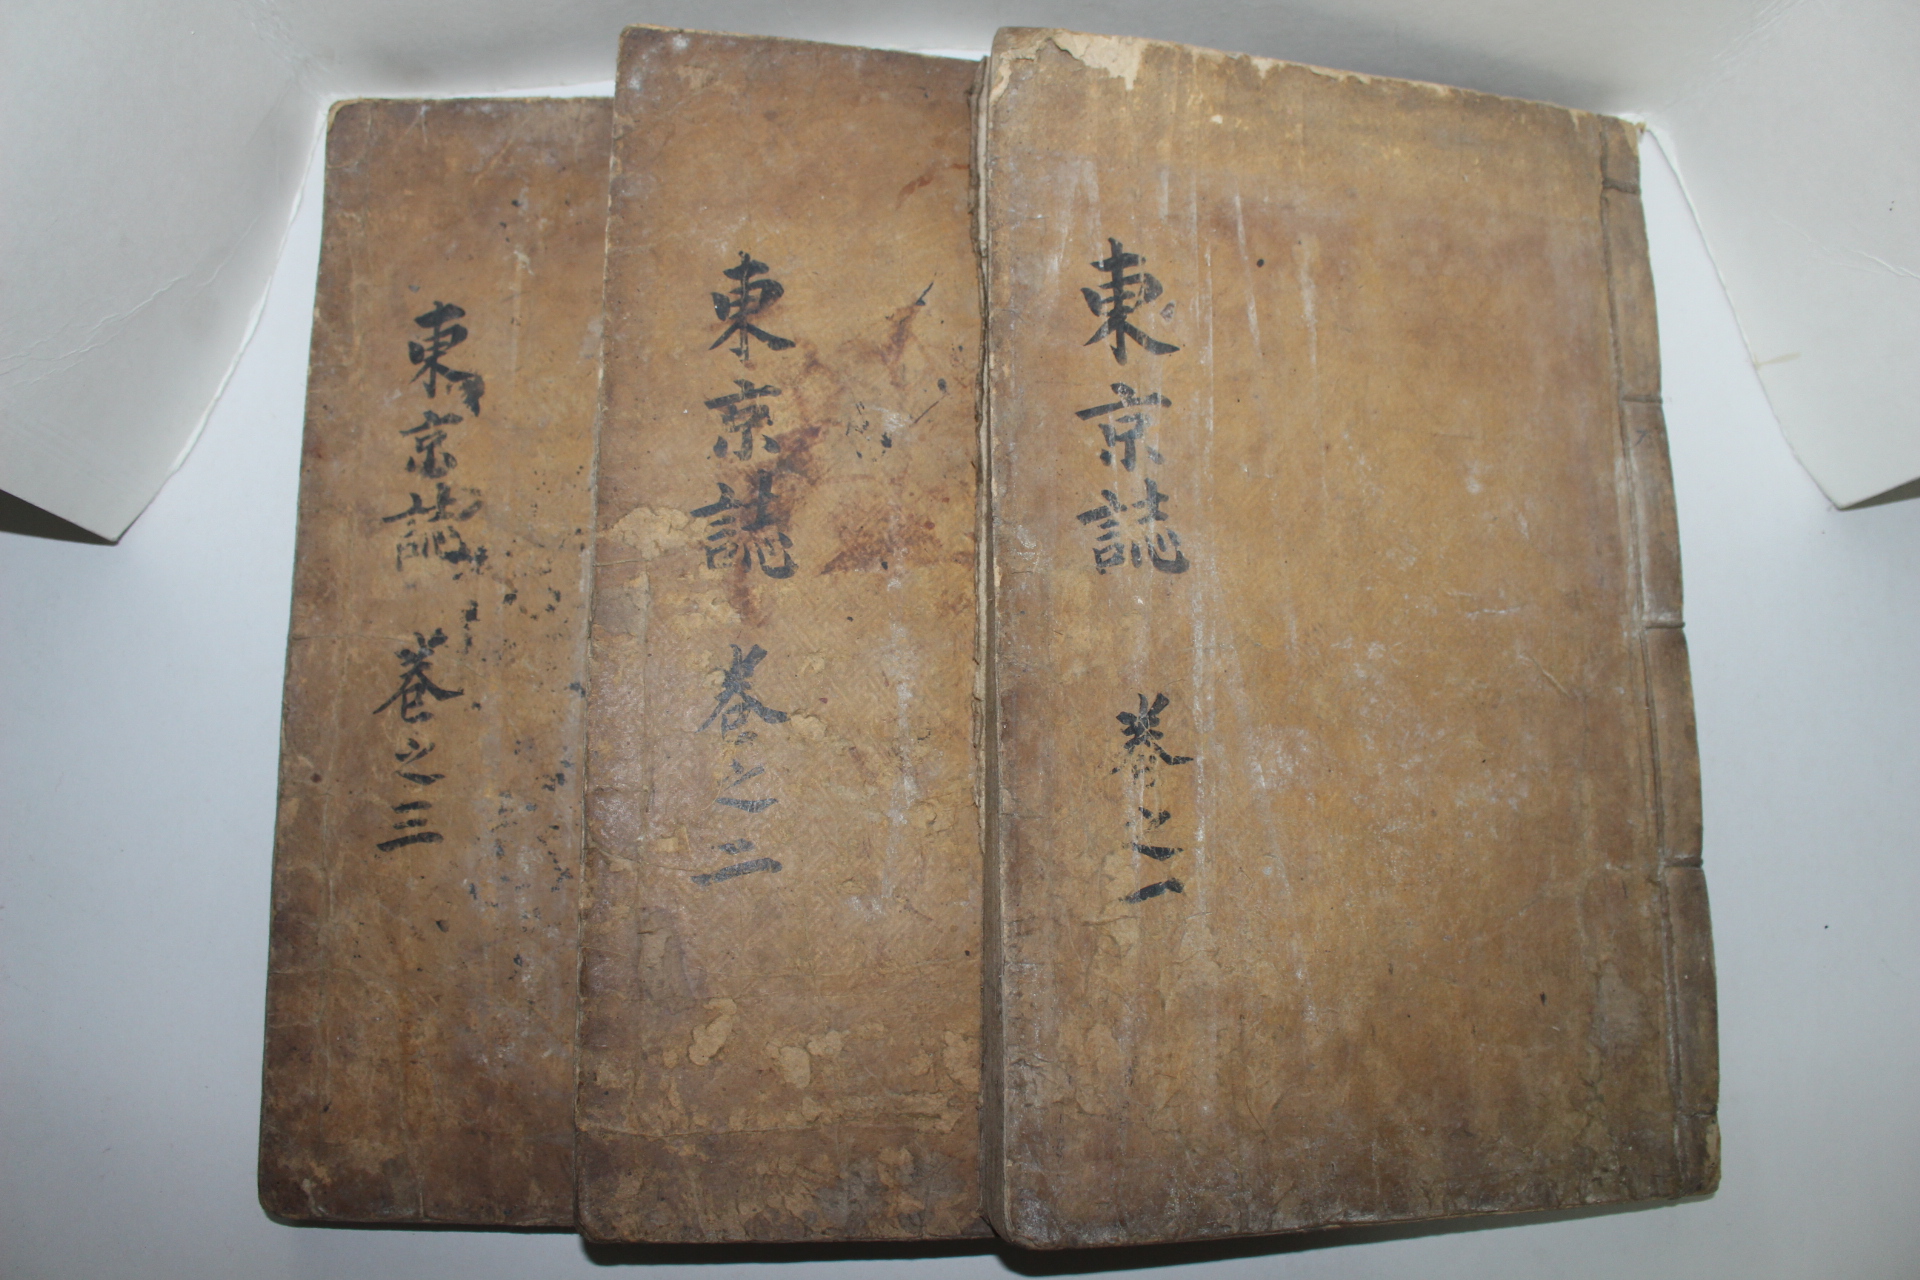 東京誌 卷之一
東京誌 卷之二
東京誌 卷之三